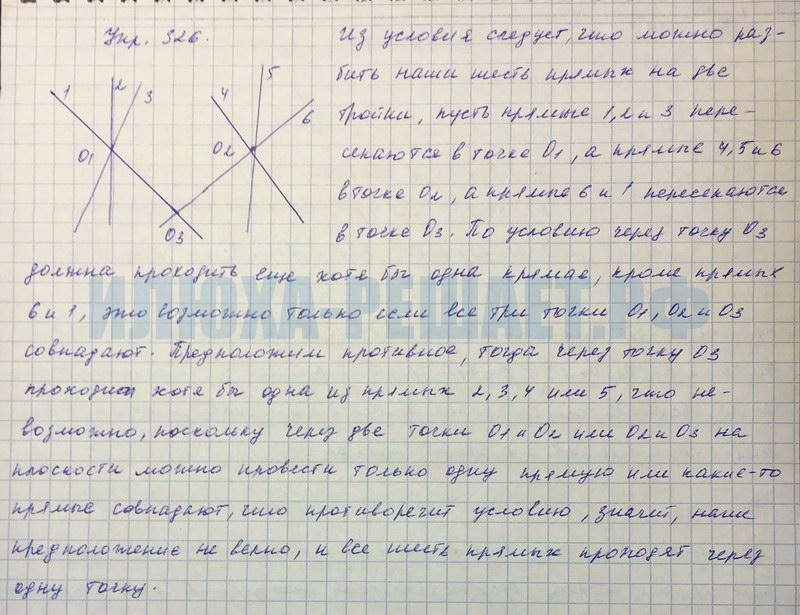 Упр. 326.
1 2 3 4 5 6
O1 O2
O3
Из условия следует, что можно раз-
бить наши шесть прямых на две
тройки, пусть прямые 1, 2 и 3 пере-
секаются в точке O1, а прямые 4, 5 и 6
в точке O2, а прямые 6 и 1 пересекаются
в точке O3. По условию через точку O3
должна проходить еще хотя бы одна прямая, кроме прямых
6 и 1, это возможно только если все три точки O1, O2 и O3
совпадают. Предположим противное, тогда через точку O3
проходит хотя бы одна из прямых 2, 3, 4 или 5, что не-
возможно, поскольку через две точки O1 и O2 или O2 и O3 на
плоскости можно провести только одну прямую или какие-то
прямые совпадают, что противоречит условию, значит, наше
предположение не верно, и все шесть прямых проходят через
одну точку.
ИЛЮХА-РЕШАЕТ.РФ